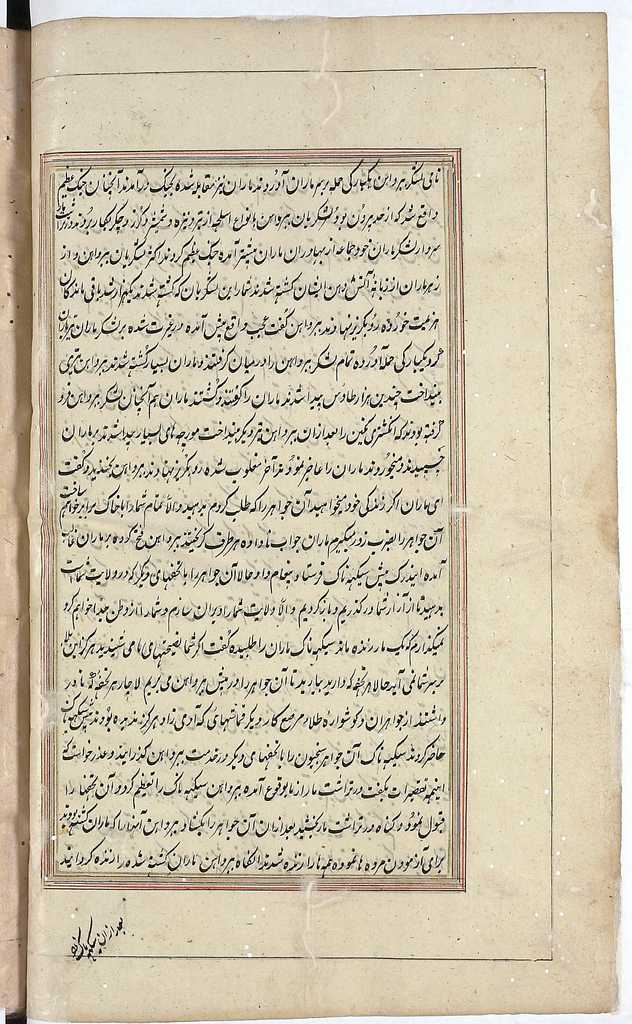 نامی لشکر ببرواهن یکبارگی حمله بر سر ماران آوردند ماران نیز مقابله شده بجنگ درآمدند آنچنان جنگ عظیم
واقع شد که از حد بیرون بود و لشکریان ببرواهن بانواع اسلحه از تیر و نیزه و شمشیر و گرز و چکر بکار بردند
سردار لشکر ماران خود با جماعه از بهادران ماران پیشتر آمده جنگ عظیم کردند اکثر لشکریان ببرواهن از
زهر ماران از زبانه آتش دهن ایشان کشته شدند شمار این لشکریان که کشته شدند یکهزار شد باقی ماندگان
هزیمت خورده رو بگریز نهادند ببرواهن گفت عجب واقع پیش آمده در غیرت شده بر لشکر ماران تیر باران
کرد یکبارگی حمله آورده تمام لشکر ببرواهن را در میان گرفتند و ماران بسیار کشته شدند ببرواهن تیری
بینداخت چندین هزار طاوس پیدا شدند ماران را گرفتند و کشتند ماران هم آنچنان لشکر ببرواهن فرو
گرفته بودند که بعد ازان ببرواهن تیر دیگر بینداخت مورچه های بسیار پیدا شدند بر ماران
چسپیدند و میخوردند ماران را عاجز نمودند آخر مغلوب شده رو بگریز نهادند ببرواهن بخندید و گفت
ای ماران اگر زندگی خود میخواهید آن جواهر را که طلب کردم بدهید والا تمام شما را با خاک برابر خواهم ساخت
آن جواهر را بضرب زور میگیرم ماران جواب ناداده هر طرف گریختند ببرواهن فتح کرده بر ماران غالب
آمده ایندرک پیش سیکهه ناک فرستاد پیغام داد حالا آن جواهر را با تحفهای دیگر که در ولایت شماست
بدهید تا از آزار شما درگذریم و باز گردیم والا ولایت شما را ویران سازم و شما را از وطن جدا خواهم کرد
نمیگذارم که یک مار زنده ماند سیکهه ناک ماران را طلبیده گفت اگر شما نصیحتهای ما می شنیدید هرگز این بلا
بر سر شما نمی آمد حالا هر تحفه که دارید بیارید تا آن جواهر را در پیش ببرواهن می بریم لاچار هر تحفه که نادر
داشتند از جواهران و گوشواره طلا و مرصع کار و دیگر قماشهای که آدمی زاد هرگز ندیده بودند پیش سیکهه ناک
حاضر کردند سیکهه ناک آن جواهر سنجیون را با تحفهای دیگر در خدمت ببرواهن گذرانید و عذر خواست که
اینهمه تقصیرات بگفت درتراشت مار از ما بوقوع آمده ببرواهن سیکهه ناک را تعظیم کرد و آن تحفها را
قبول نمود و گناه درتراشت مار بخشید بعد ازان آن جواهر را بگرفتند و ببرواهن آنها را که ماران کشته بودند
برای آزمودن مرده ها نموده همه ها را زنده شدند آنگاه ببرواهن ماران کشته شده را زنده گردانید
بعد ازان سیکهه ناک